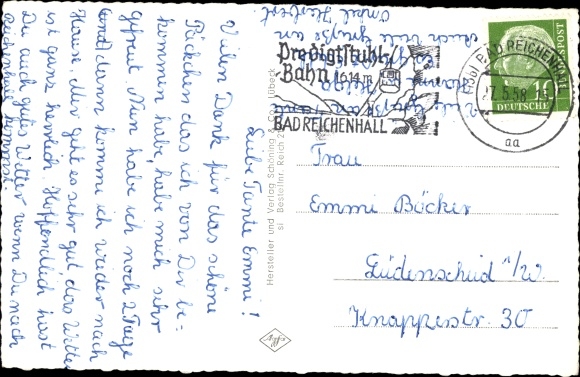 Liebe Tante Emmi!
Vielen Dank für das schöne
Päckchen das ich von Dir be-
kommen habe, habe mich sehr
gefreut. Nun habe ich noch 2 Tage
und dann komme ich wieder nach
Hause. Mir geht es sehr gut, das Wetter
ist ganz herrlich. Hoffentlich hast
Du auch gutes Wetter wenn Du nach
Reichenhall kommst.
Viele Grüße
Helga
Auch viele Grüße an
Onkel Herbert
Predigtstuhl-
Bahn 1614 m
BAD REICHENHALL
BAD REICHENHALL
7.5.58
aa
POST
DEUTSCHE
Frau
Emmi Böcker
Lüdenscheid i/W.
Knappenstr. 30
Hersteller und Verlag Schöning & Co., Lübeck
Bestellnr. Reich